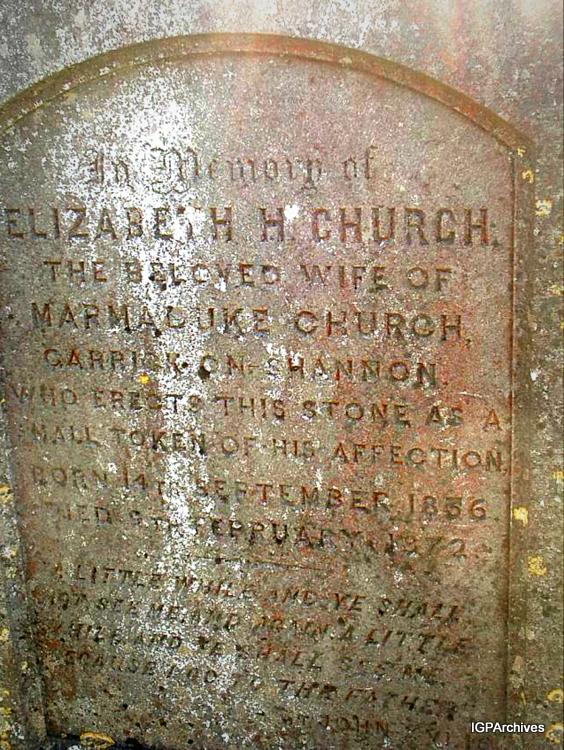 In Memory of
ELIZABETH H. CHURCH,
THE BELOVED WIFE OF
MARMADUKE CHURCH,
CARRICK-ON-SHANNON.
WHO ERECTS THIS STONE AS A
SMALL TOKEN OF HIS AFFECTION,
BORN 14TH SEPTEMBER, 1836.
DIED FEBRUARY, 1872.
A LITTLE WHILE AND YE SHALL
NOT SEE ME AND AGAIN A LITTLE
WHILE AND YE SHALL SEE ME
BECAUSE I GO TO THE FATHER
ST JOHN
IGPArchives